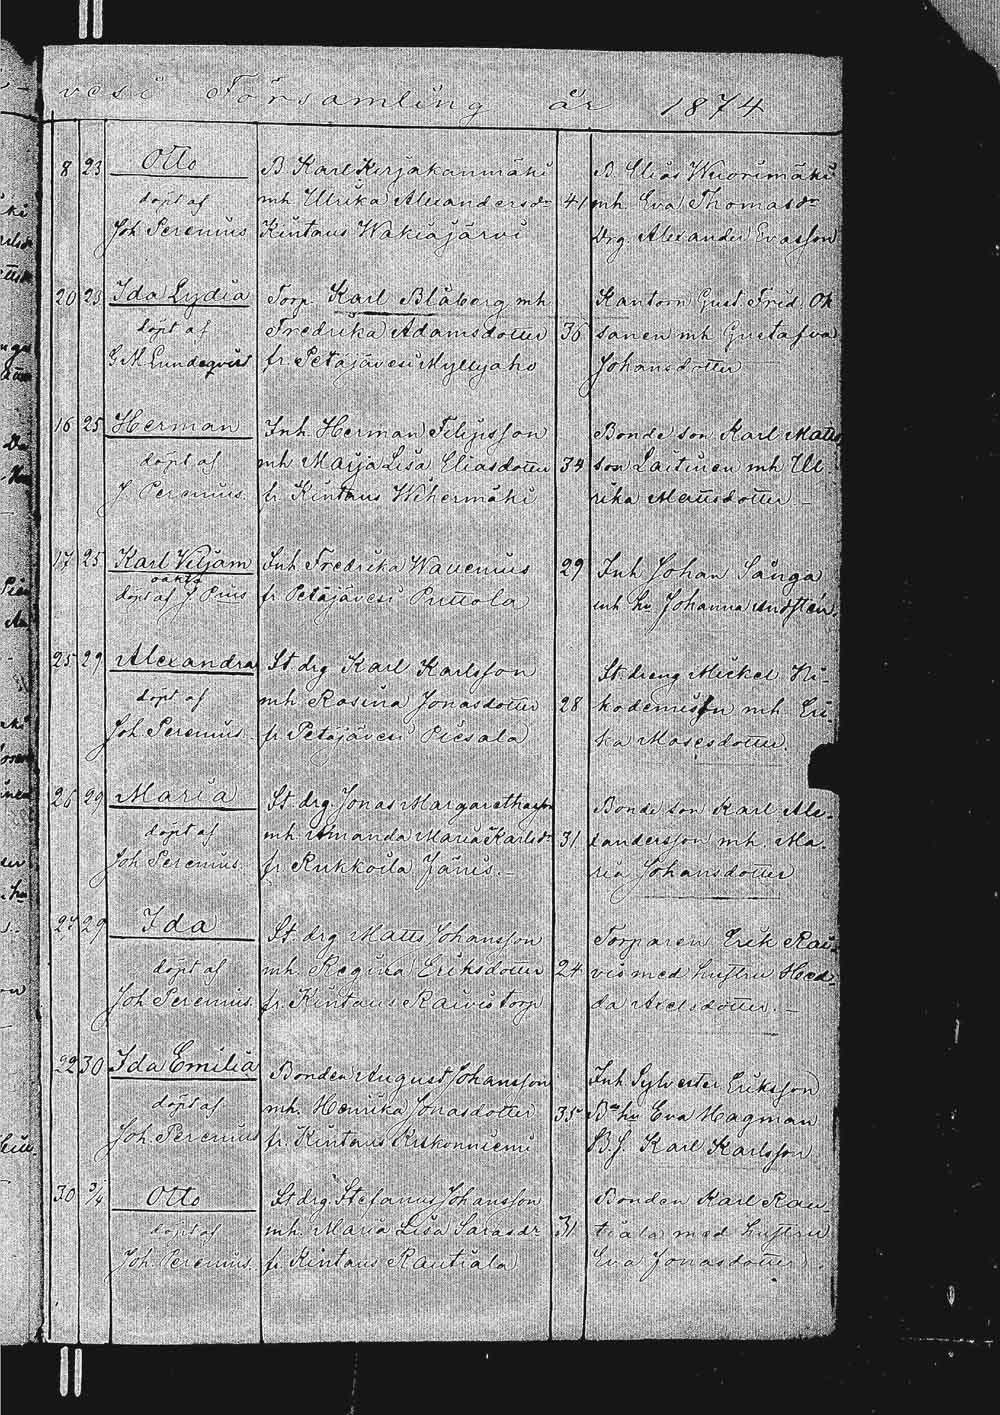 vesi Församling år 1874
8 23 Otto B Karl Kirjakanmäki B. Elias Wuorimäki
döpt af mh Ulrika Alexandersdr 41 mh Eva Thomasdr
Joh Perenius Kintaus Wakiajärvi Drg. Alexander Evasson
20 23 Ida Lydia Torp Karl Blåberg mh Kantorn Gust. Fred. Ok
döpt af Fredrika Adamsdotter 36 sanen mh Gustafva
G M Lundeqvist fr Petäjävesi Myllyaho Johansdotter
16 25 Herman Inh. Herman Filipsson Bonde son Karl Matts
döpt af mh Maija Lisa Eliasdotter 34 son Laitinen mh Ul
J. Perenius fr Kintaus Wehermäki rika Mattsdotter. –
17 25 Karl Viljam Inh Fredrika Wauenius 29 Inh Johan Långa
oäkta
döpt af J. Prius fr Petäjävesi Puttola mh hu Johanna Andsten.
25 29 Alexandra St. drg Karl Karlsson St. dreng Mickel Ni-
döpt af mh Rosina Jonasdotter 28 kodemisson mh Eri-
Joh Perenius fr Petäjävesi Piesala ka Mosesdotter.
26 29 Maria St drg. Jonas Margarethasson Bonde son Karl Ale-
döpt af mh. Amanda Maria Karlsdr 31 xandersson mh. Ma-
Joh Perenius. fr Kukkoila Jänis. – ria Johansdotter
27 29 Ida St. drg Matts Johansson Torparen Erik Rai-
döpt af mh. Regina Eriksdotter 24 vis med hustru Hed-
Joh Perenius. fr. Kintaus Raivis torp da Axelsdotter. –
22 30 Ida Emilia Bonden August Johansson Inh Sylvester Eriksson
döpt af mh. Henrika Jonasdotter 35 Bde hu Eva Hagman
Joh. Perenius fr. Kintaus Kukonniemi B.S. Karl Karlsson
30 3/4 Otto St drg Stefanus Johansson Bonden Karl Rau-
döpt af mh. Maria Lisa Sarasdr 31 tiala med hustru
Joh. Perenius. fr. Kintaus Rautiala Eva Jonasdotter.